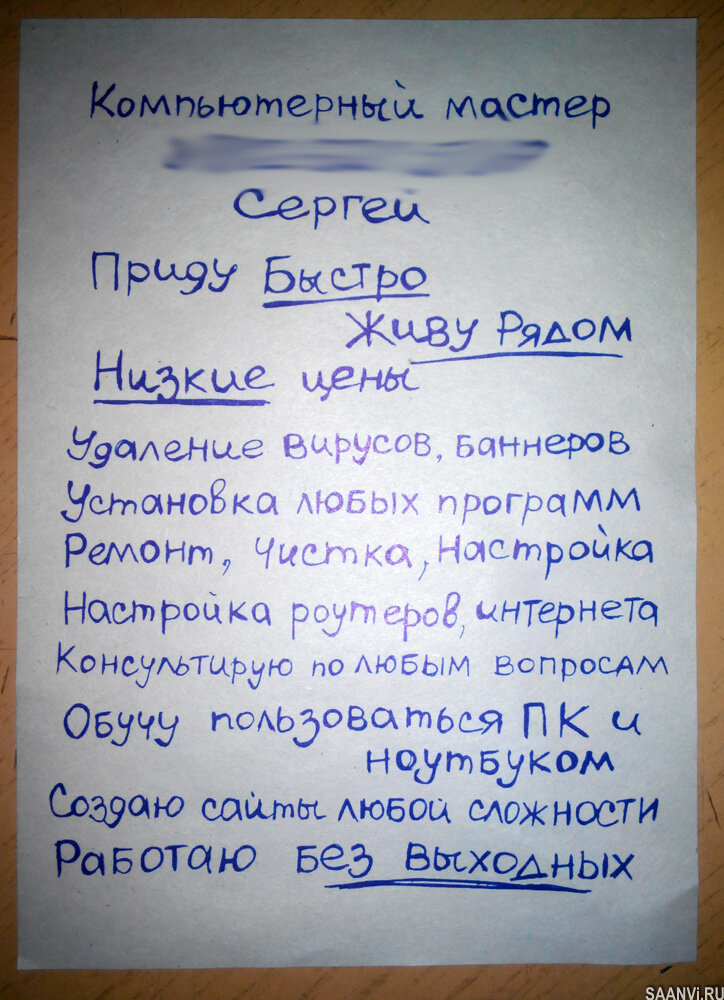 Компьютерный мастер
Сергей
Приду Быстро
Живу Рядом
Низкие цены
Удаление вирусов, баннеров
Установка любых программ
Ремонт, Чистка, Настройка
Настройка роутеров, интернета
Консультирую по любым вопросам
Обучу пользоваться ПК и
ноутбуком
Создаю сайты любой сложности
Работаю без выходных
SAANVI.RU